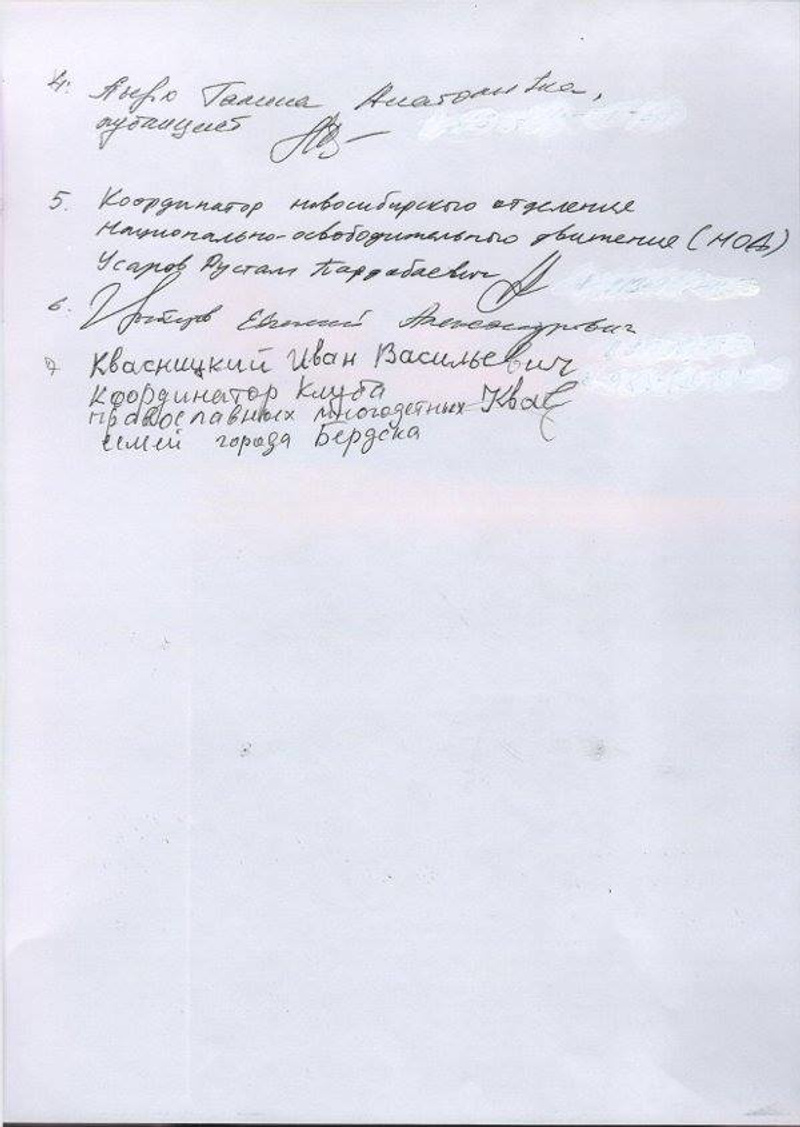 4. Галина Анатольевна,
публицист
5. Координатор новосибирского отделения
Национально-освободительного движения (НОД)
Усаров Рустам Пардабаевич
6. Евгений Александрович
7 Квасницкий Иван Васильевич
координатор клуба
православных многодетных Квас
семей города Бердска